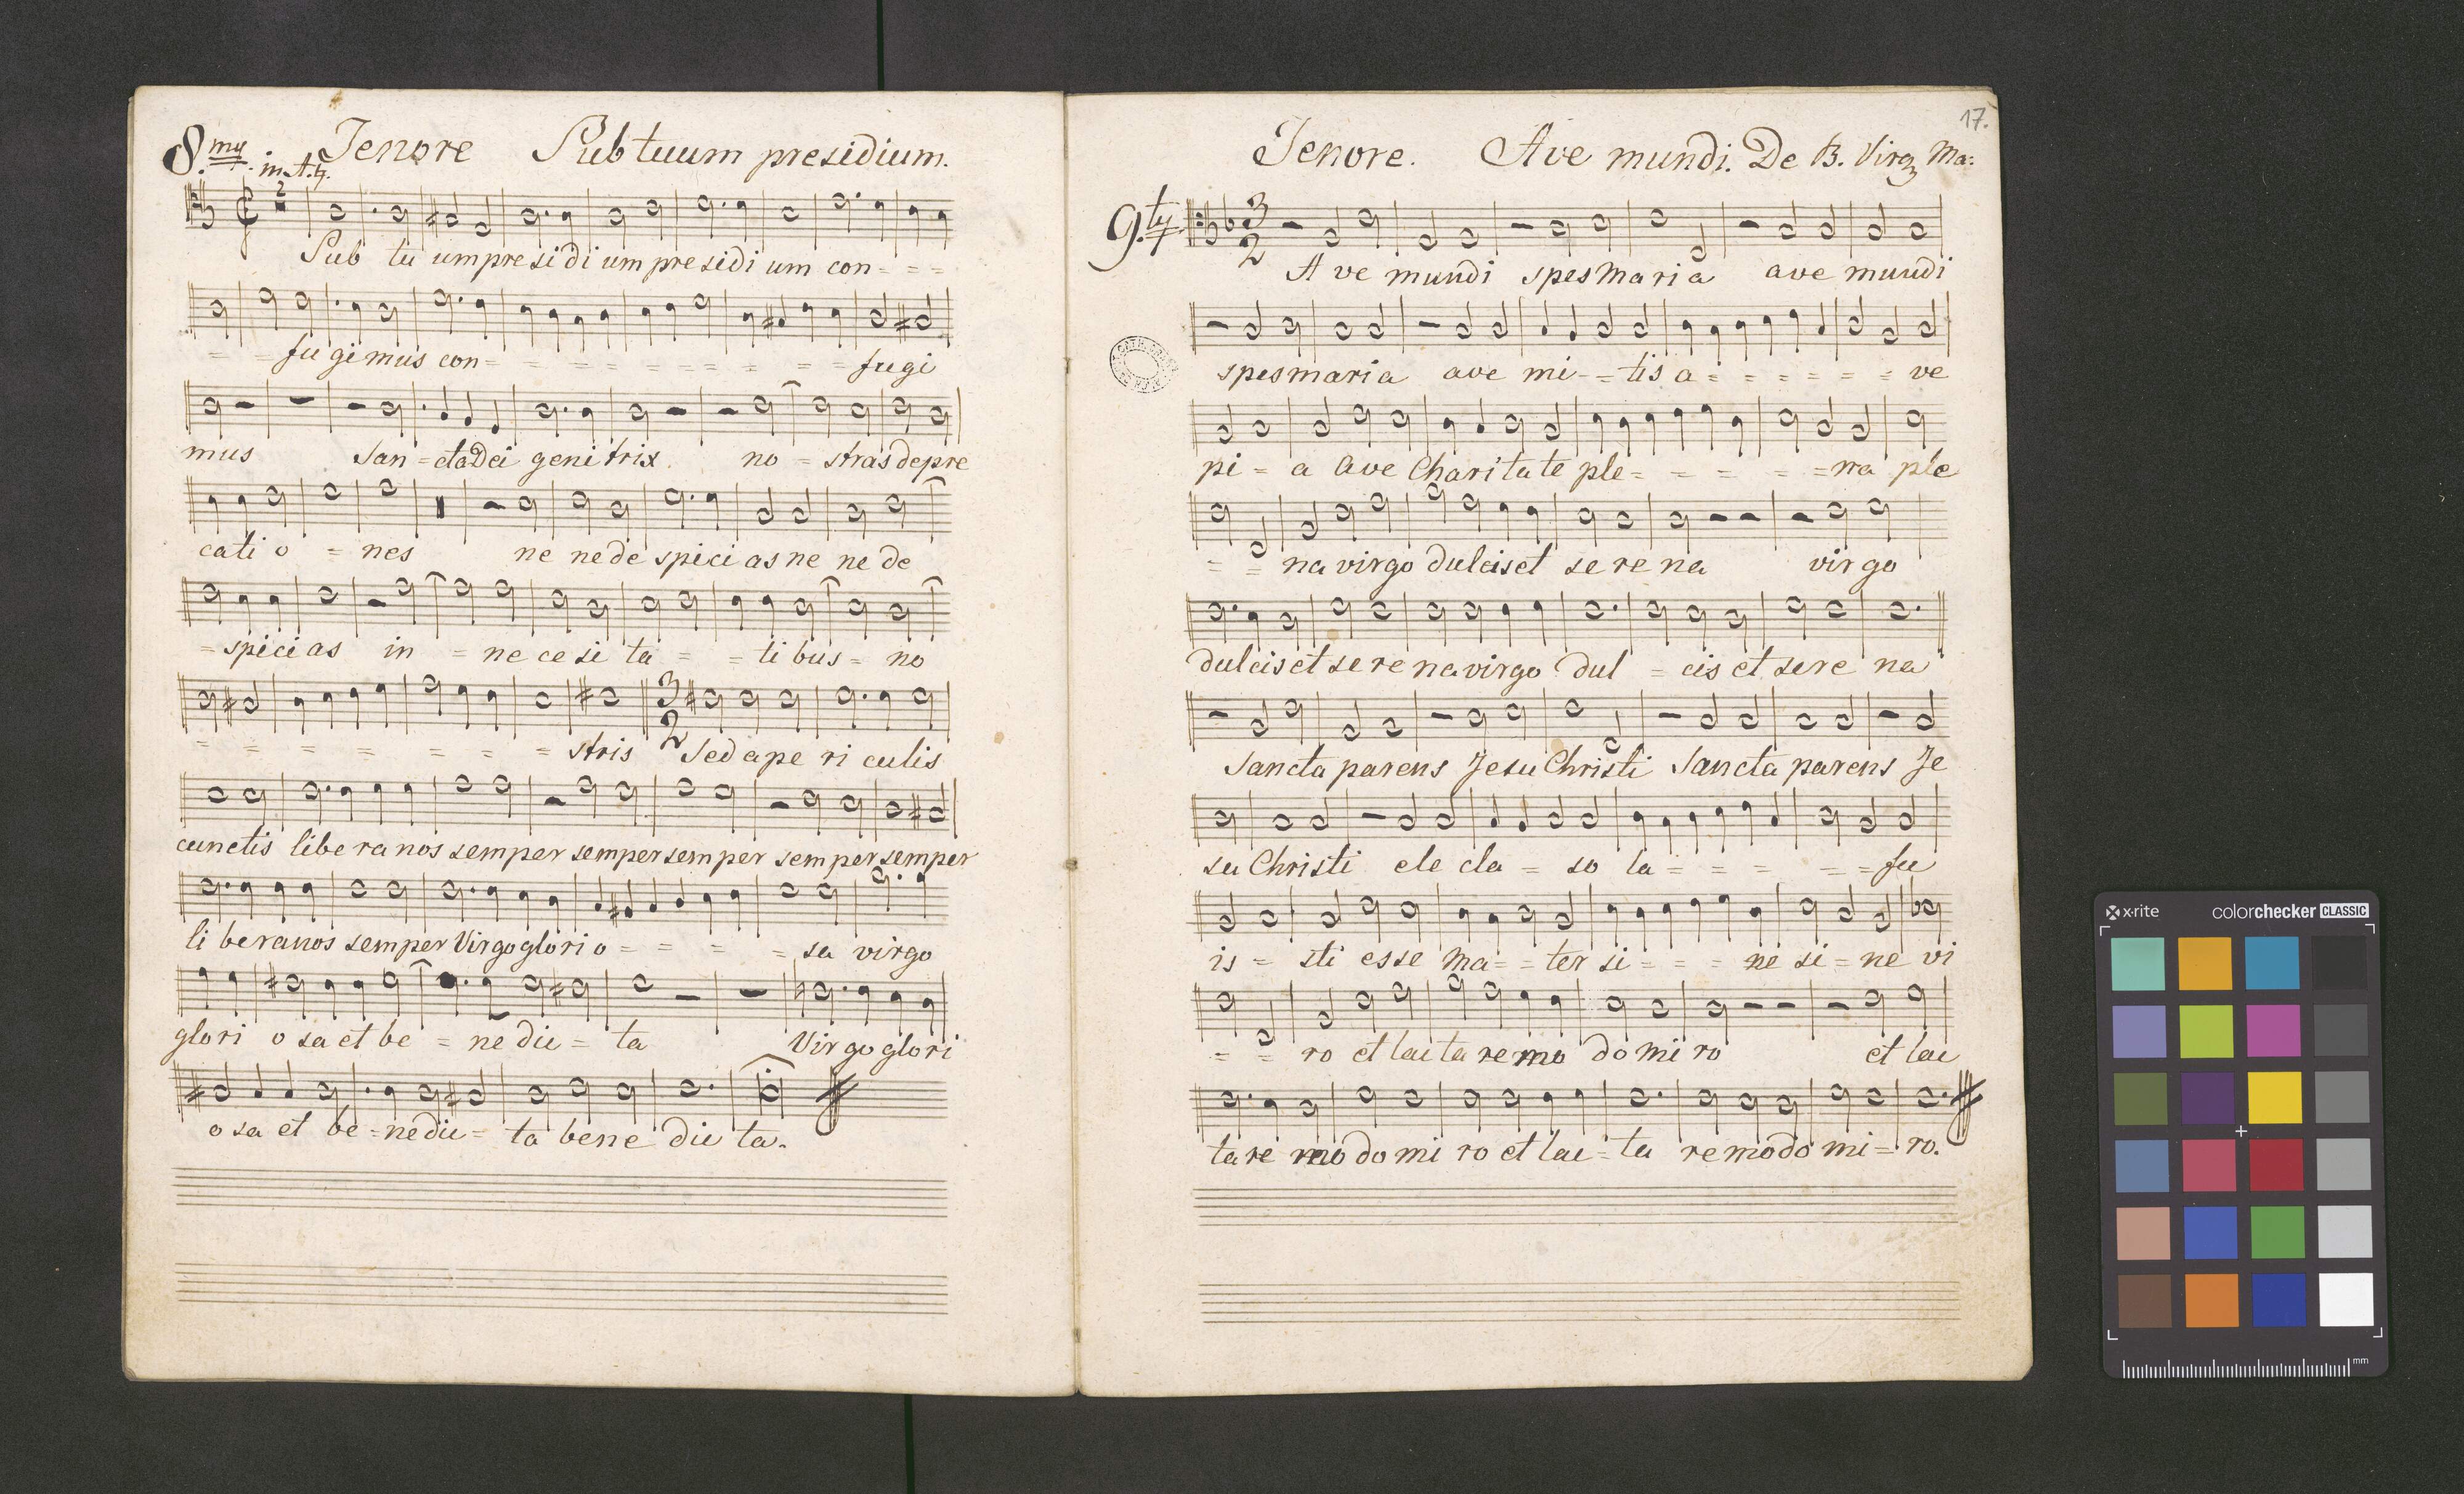 8.my in A.♮. Tenore Sub tuum presidium.
2
Sub tu um presidi um presidi um con - - -
= = fu gi mus con - = = = = = = = = fugi
mus San = cta Dei geni trix no = stras depre
cati o = nes ne ne de spici as ne ne de
= spici as in = ne ce si ta = = ti bus = no
= = = = = = = stris 3 2 Sed a pe ri culis
cunctis libe ra nos semper semper semper semper semper
li beranos semper Virgo glori o = = = = sa virgo
glori o sa et be = ne dic = ta Virgo glori
o sa et be = nedic = ta bene dic ta.
17.
Tenore. Ave mundi. De B. Virg Ma:
9.ty 3 2
A ve mundi spes Maria ave mundi
spes maria ave mi - = tis a = = = = = = ve
pi = a ave Charitate ple = = = = = na ple
= = na virgo dulcis et se re na virgo
dulcis et se re na virgo dul = cis et sere na
Sancta parens Jesu Christi Sancta parens Je
su Christi ele cta = so la = = = = = fu
is = sti esse Ma = = ter si = = = ne si = ne vi
= = ro et lac ta re mo do mi ro et lac
ta re modo mi ro et lac = ta re modo mi = ro.
x-rite colorchecker CLASSIC
mm